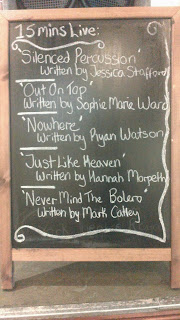 15 mins Live:
'Silenced Percussion'
Written by Jessica Stafford
'Out On Top'
Written by Sophie Marie Ward
'Nowhere'
Written by Ryan Watson
'Just Like Heaven'
Written by Hannah Morpeth
'Never Mind The Bolero'
Written by Mark Catley